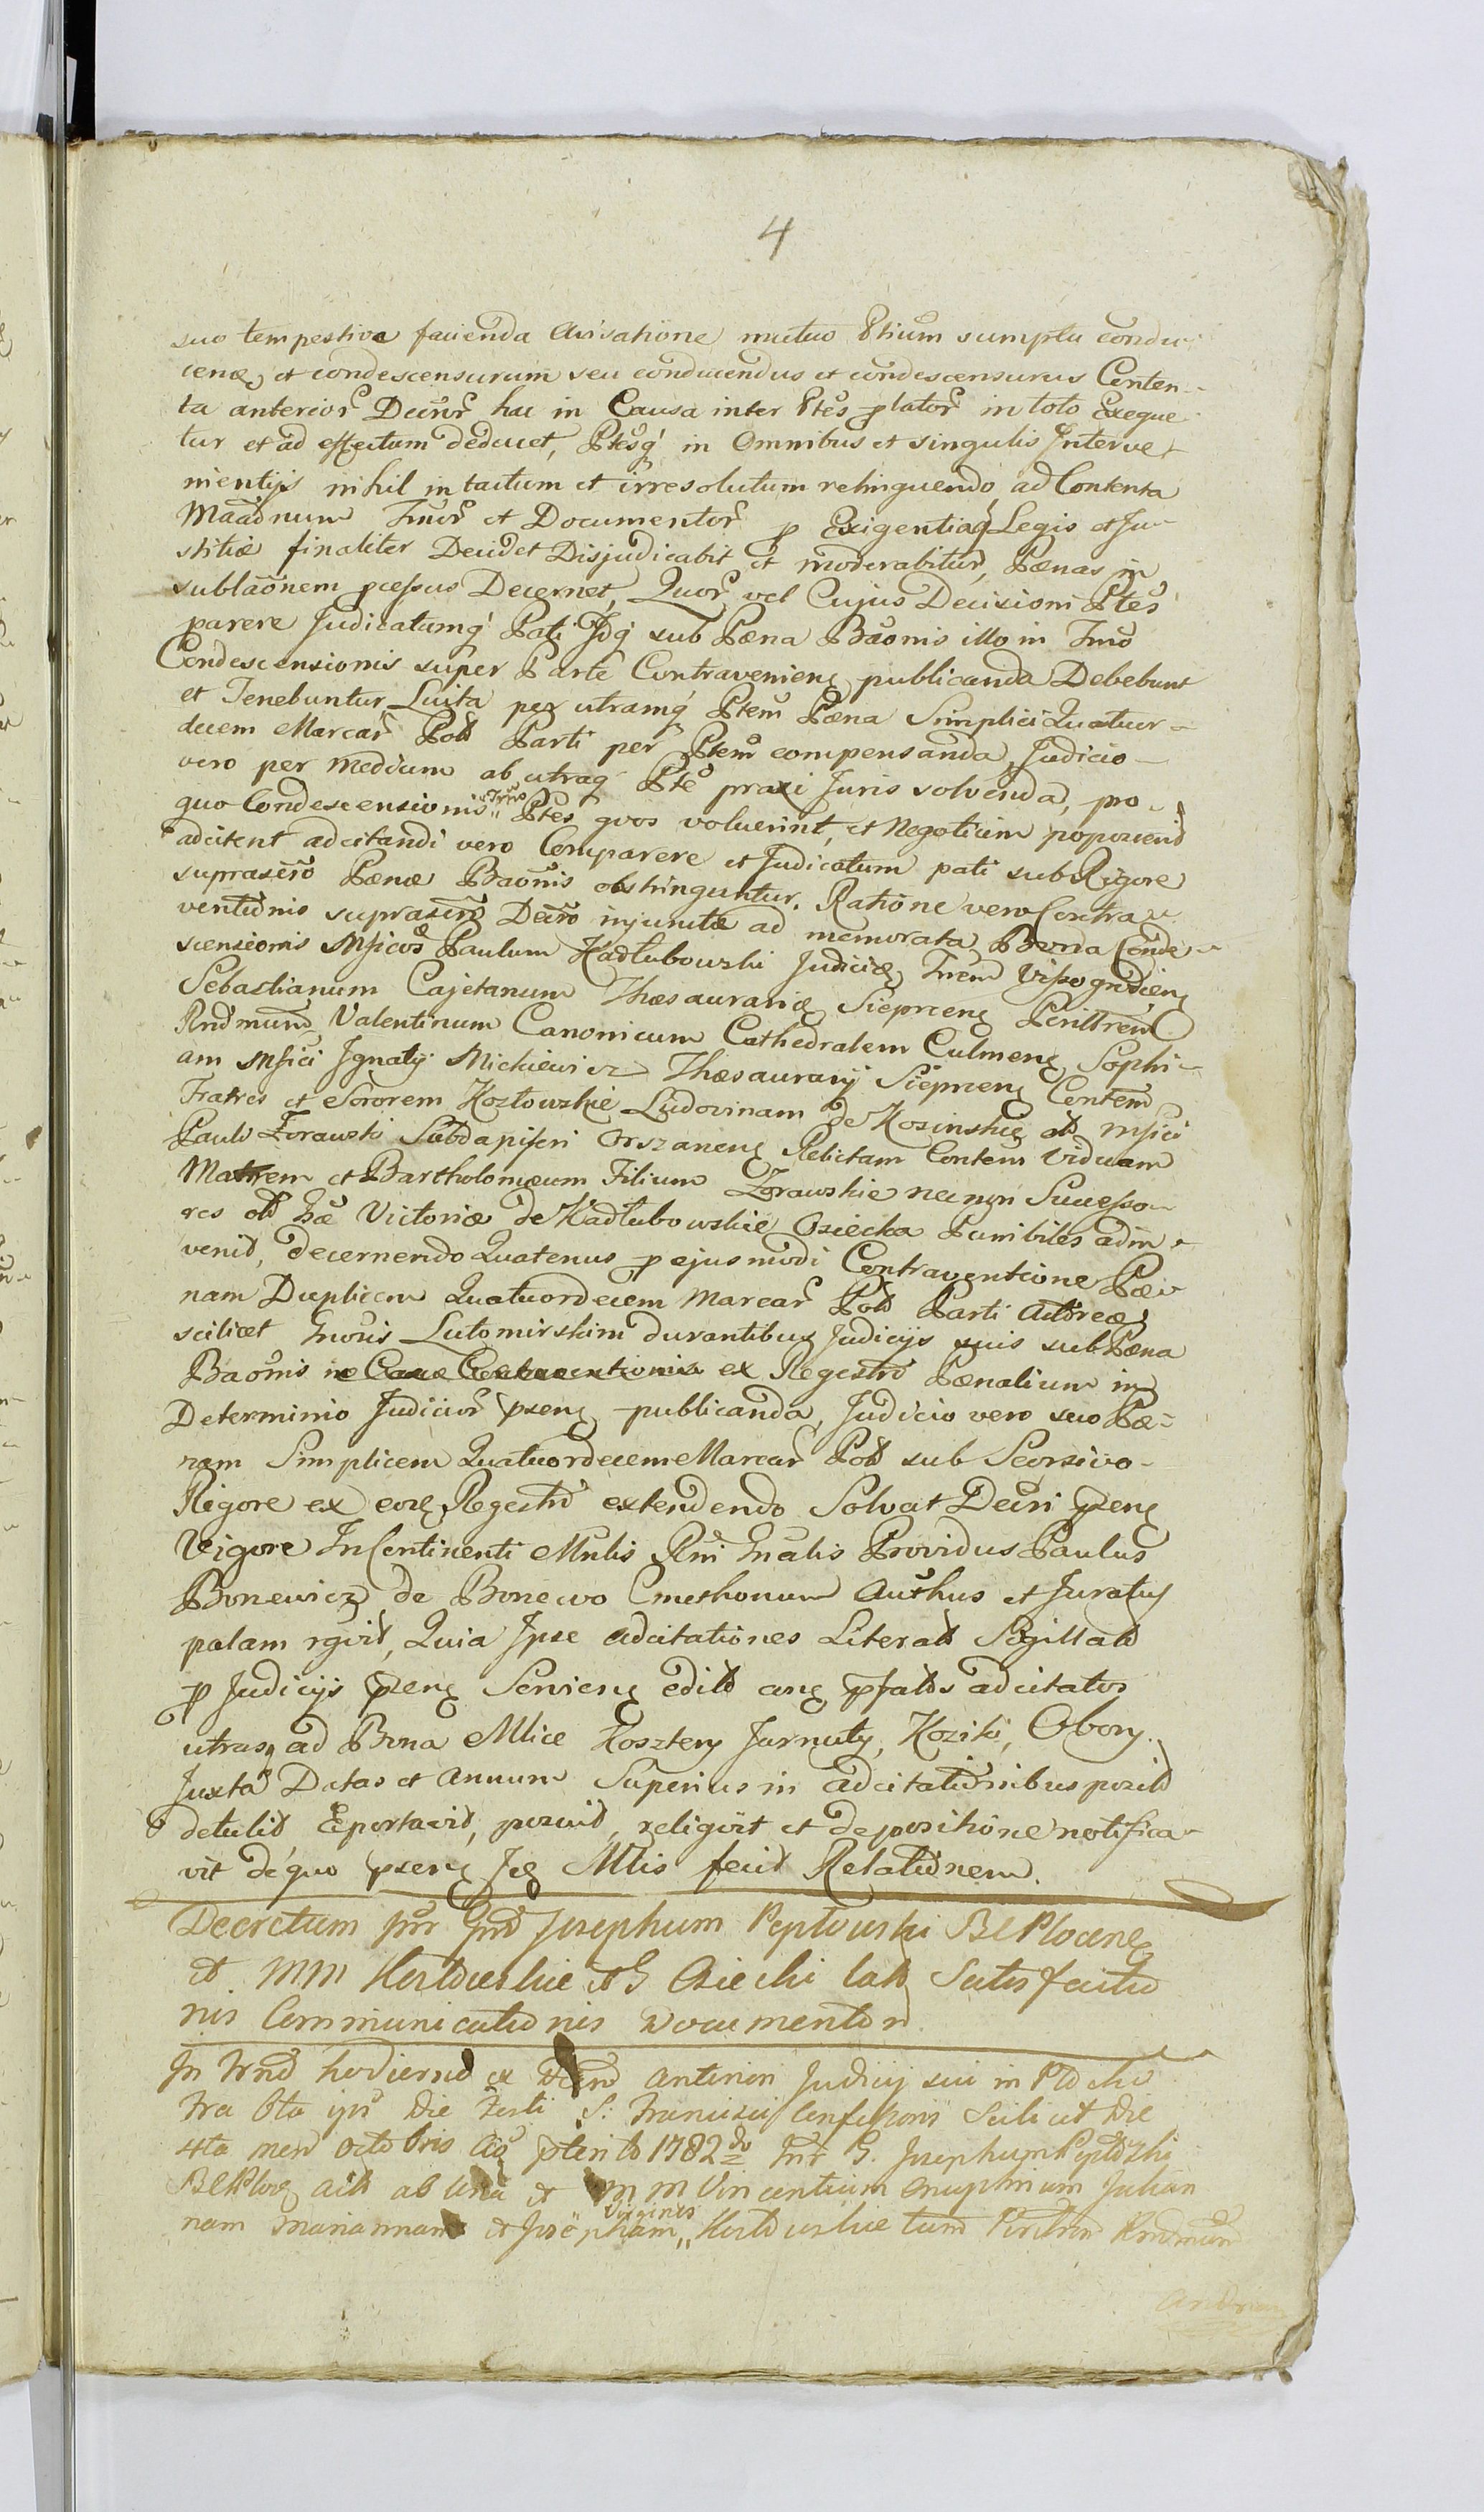 4
suo tempestive facienda Avisatione mutuo Ptium sumptu condu-
cenę et condescensurum seu conducendus et condescensurus Conten-
ta anterior Decror hac in Causa inter Ptes plator in toto Exeque
tur et ad effectum deducet, Ptesq in Omnibus et singulis Interve-
nientijs nihil intactum et irresolutum relinquendo ad Contenta
Maadnum Imor et Documentor p Exigentiaq Legis et Ju-
stitiæ finaliter Decidet Disjudicabit et moderabitur, Pænas in
sublaonem pcessus Decernet, Quor vel Cujus Decisioni Ptes
parere Judicatumq Pati Jdq sub Pæna Baonis illo in Tmo
Condescensionis super Parte Contravenienę publicanda Debebunt
et Tenebuntur Luita per utramq Ptem Pæna Simplici Quatuor-
decem Marcar Pold Parti per Ptem compensanda, Judicio
vero per Medium ab utraq Pte praxi Juris solvenda, pro
quo Condescensionis Tmo Ptes quos voluerint, et Negotium poposcerit
adcitent adcitandi vero Comparere et Judicatum pati sub Rigore
suprascro Pænæ Baonis obstringuntur. Ratione vero Contra-
ventionis suprascro Decro injunctæ ad memorata Bona Conde-
scensionis Msicos Paulum Kadłubowski Judicię Trem Vissogrodienę
Sebastianum Cajetanum Thæsaurarię Siepcenę Penittrem
Rndmum Valentinum Canonicum Cathedralem Culmenę Sophi-
am Msici Jgnatij Mickiewicz Thæsaurarij Siepcenę Contem
Fratres et Sororem Kozłowskie Ludovinam de Kosinskię old Msici
Pauli Zorawski Subdapiferi Orszanenę Relictam Contem Viduam
Matrem et Bartholomæum Filium Zorawskie nec non Successo-
res old Gæ Victoriæ de Kadłubowskie Osiecka Punibiles adin-
venit, decernendo Quatenus p ejusmodi Contraventione Pæ-
nam Duplicem Quatuordecem Marcar Pold Parti Actoreæ
scilicet Gnosis Lutomirskim durantibus Judicijs suis sub Pæna
Baonis ex Regestro Pænalium in
Determinio Judicior psenę publicanda, Judicio vero suo Pæ-
nam Simplicem Quatuordecem Marcar Pold sub Seorsivo
Rigore ex eoę Regestro extendendo Solvat Decri psenę
Vigore In Continenti Mnlis Rni Gnalis Providus Paulus
Bonewicz de Bonewo Cmethonum Authus et Juratus
palam rgvit, Quia Jpse adcitationes Literald Sigillald
p Judicijs psenę Servienę edild anę pfalds adcitatos
utrasq ad Bona Mlice Kosztery Jarnuty, Koziki, Obory
Juxta Datas et Annum Superius in adcitationibus posild
detulit Eportavit, posuit, religvit et depositione notifica-
vit de quo psenę Jeę Mlis fecit Relationem.
Decretum inr Gnd Josephum Peptowski BC Plocenę
et MM Kozłowskie et G Osiecki lald Satisfactio
nis Communicationis Documentor
In Trno hodierno ex Decro anterior Judicij sui in Plocko
Fra 6ta ipo Die Festi S: Francisci Confessoris Scilicet Die
4ta men Octobris Ao pterito 1782do Inr G. Josephum Peptowski
BC Plocę acld ab una et MM Vincentium Onuphrium Julian
nam Mariannam et Josepham Virgines Kozłowskie tum Perillrem Rndmum